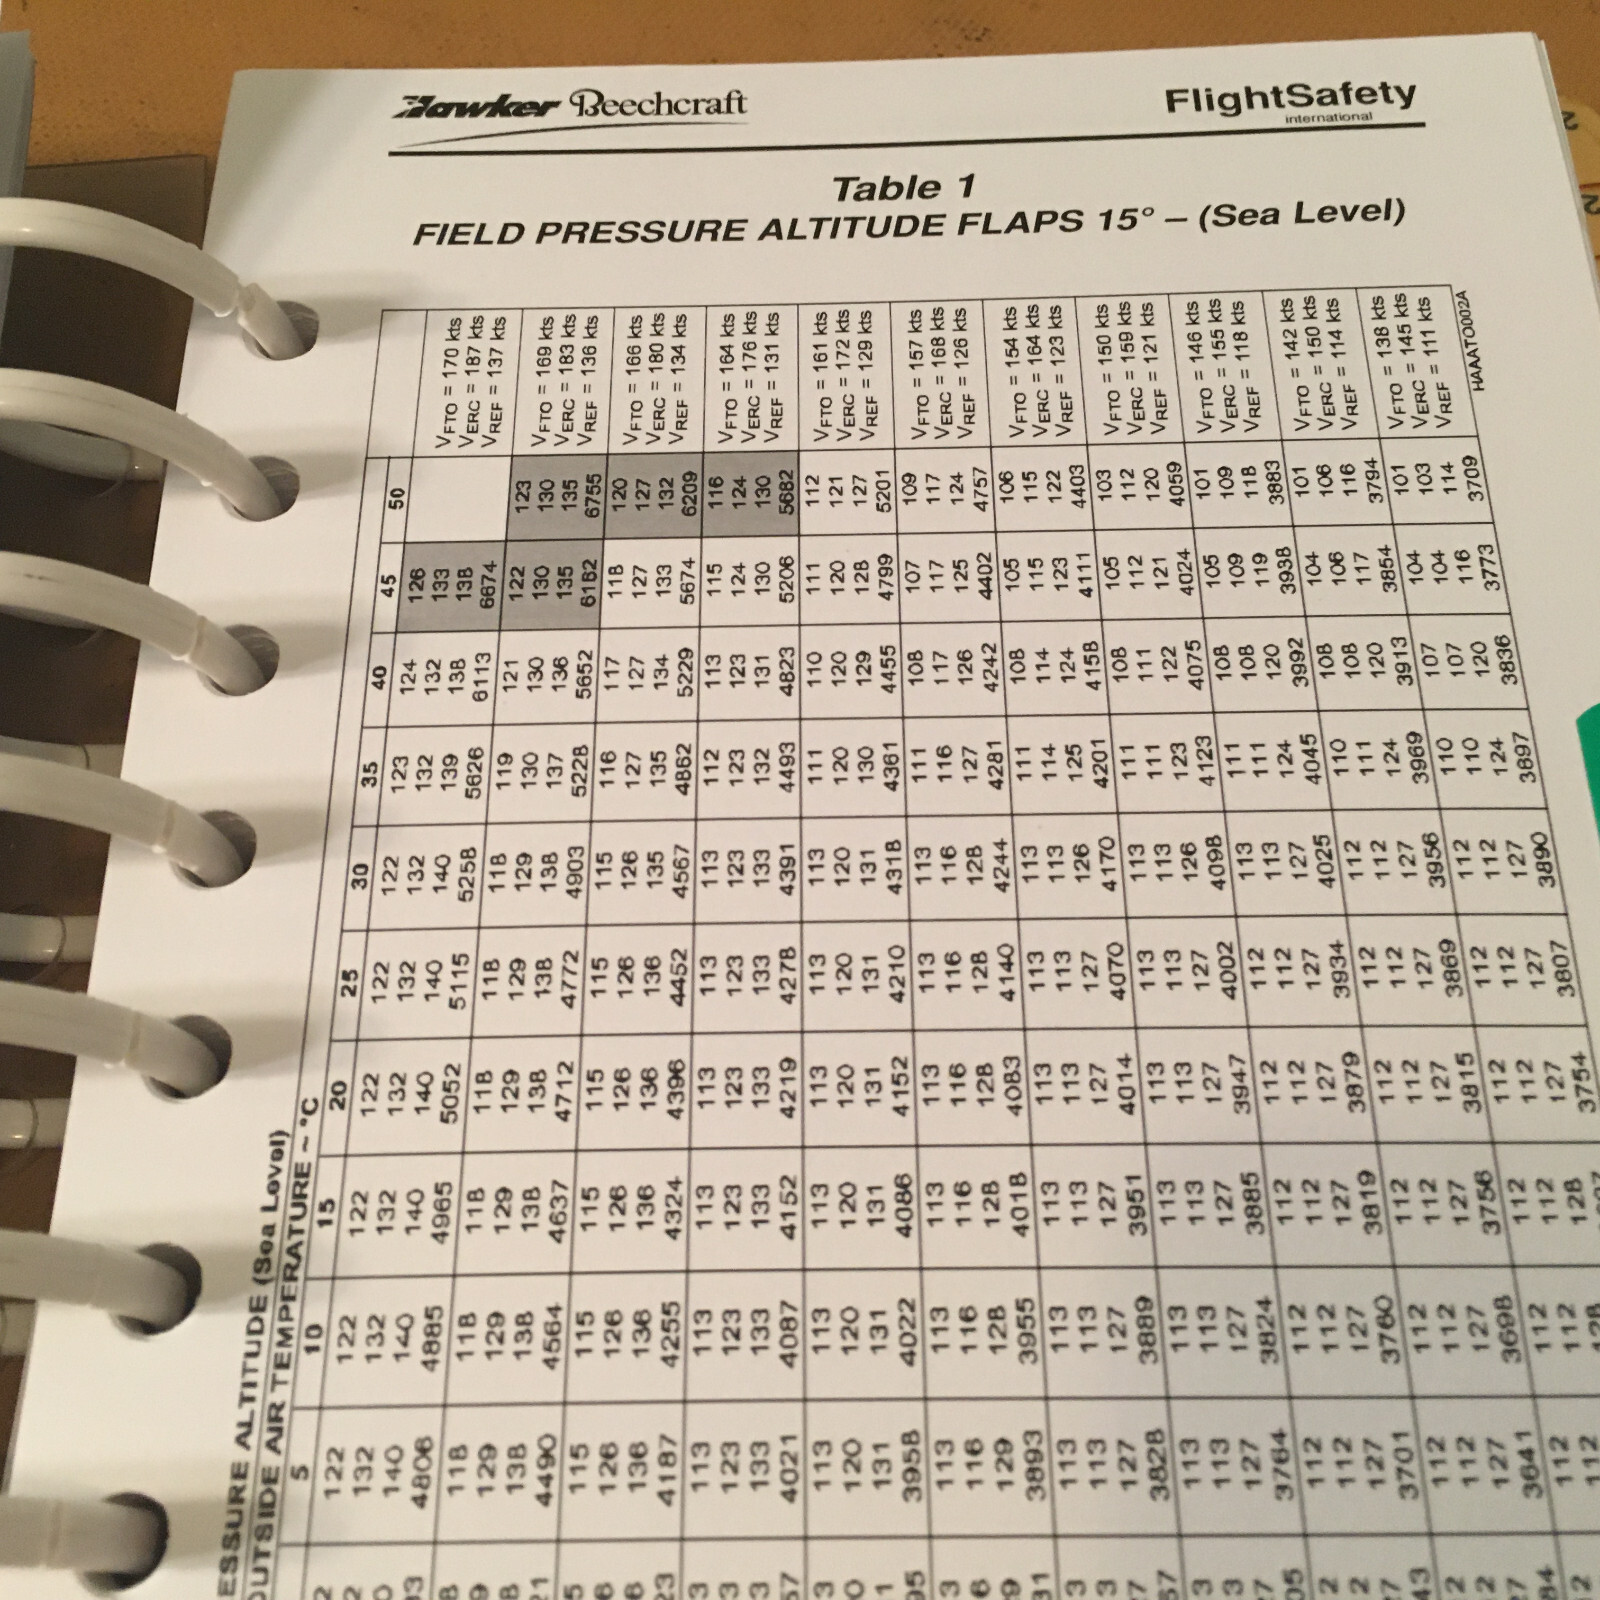 Hawker Beechcraft
FlightSafety
international
Table 1
FIELD PRESSURE ALTITUDE FLAPS 15° – (Sea Level)
ESSURE ALTITUDE (Sea Level)
OUTSIDE AIR TEMPERATURE ~ °C
5 10 15 20 25 30 35 40 45 50
122 122 122 122 122 122 123 124 126
132 132 132 132 132 132 132 132 133 VFTO = 170 kts
140 140 140 140 140 140 139 138 138 VERC = 187 kts
4806 4885 4965 5052 5115 5258 5626 6113 6674 VREF = 137 kts
118 118 118 118 118 118 119 121 122 123
129 129 129 129 129 129 130 130 130 130 VFTO = 169 kts
138 138 138 138 138 138 137 136 135 135 VERC = 183 kts
4490 4564 4637 4712 4772 4903 5228 5652 6182 6755 VREF = 136 kts
115 115 115 115 115 115 116 117 118 120
126 126 126 126 126 126 127 127 127 127 VFTO = 166 kts
136 136 136 136 136 135 135 134 133 132 VERC = 180 kts
4187 4255 4324 4396 4452 4567 4862 5229 5674 6209 VREF = 134 kts
113 113 113 113 113 113 112 113 115 116
123 123 123 123 123 123 123 123 124 124 VFTO = 164 kts
133 133 133 133 133 133 132 131 130 130 VERC = 176 kts
4021 4087 4152 4219 4278 4391 4493 4823 5206 5682 VREF = 131 kts
113 113 113 113 113 113 111 110 111 112
120 120 120 120 120 120 120 120 120 121 VFTO = 161 kts
131 131 131 131 131 131 130 129 128 127 VERC = 172 kts
3958 4022 4086 4152 4210 4318 4361 4455 4799 5201 VREF = 129 kts
113 113 113 113 113 113 111 108 107 109
116 116 116 116 116 116 116 117 117 117 VFTO = 157 kts
129 128 128 128 128 128 127 126 125 124 VERC = 168 kts
3893 3955 4018 4083 4140 4244 4281 4242 4402 4757 VREF = 126 kts
113 113 113 113 113 113 111 108 105 106
113 113 113 113 113 113 114 114 115 115 VFTO = 154 kts
127 127 127 127 127 126 125 124 123 122 VERC = 164 kts
3828 3889 3951 4014 4070 4170 4201 4158 4111 4403 VREF = 123 kts
113 113 113 113 113 113 111 108 105 103
113 113 113 113 113 113 111 111 112 112 VFTO = 150 kts
127 127 127 127 127 126 123 122 121 120 VERC = 159 kts
3764 3824 3885 3947 4002 4098 4123 4075 4024 4059 VREF = 121 kts
112 112 112 112 112 113 111 108 105 101
112 112 112 112 112 113 111 108 109 109 VFTO = 146 kts
127 127 127 127 127 127 124 120 119 118 VERC = 155 kts
3701 3760 3819 3879 3934 4025 4045 3992 3938 3883 VREF = 118 kts
112 112 112 112 112 112 110 108 104 101
112 112 112 112 112 112 111 108 106 106 VFTO = 142 kts
127 127 127 127 127 127 124 120 117 116 VERC = 150 kts
3641 3698 3756 3815 3869 3956 3969 3913 3854 3794 VREF = 114 kts
112 112 112 112 112 112 110 107 104 101
112 112 112 112 112 112 110 107 104 103 VFTO = 138 kts
128 128 127 127 127 124 120 116 114 VERC = 145 kts
3754 3807 3890 3897 3836 3773 3709 VREF = 111 kts
HAAATO002A